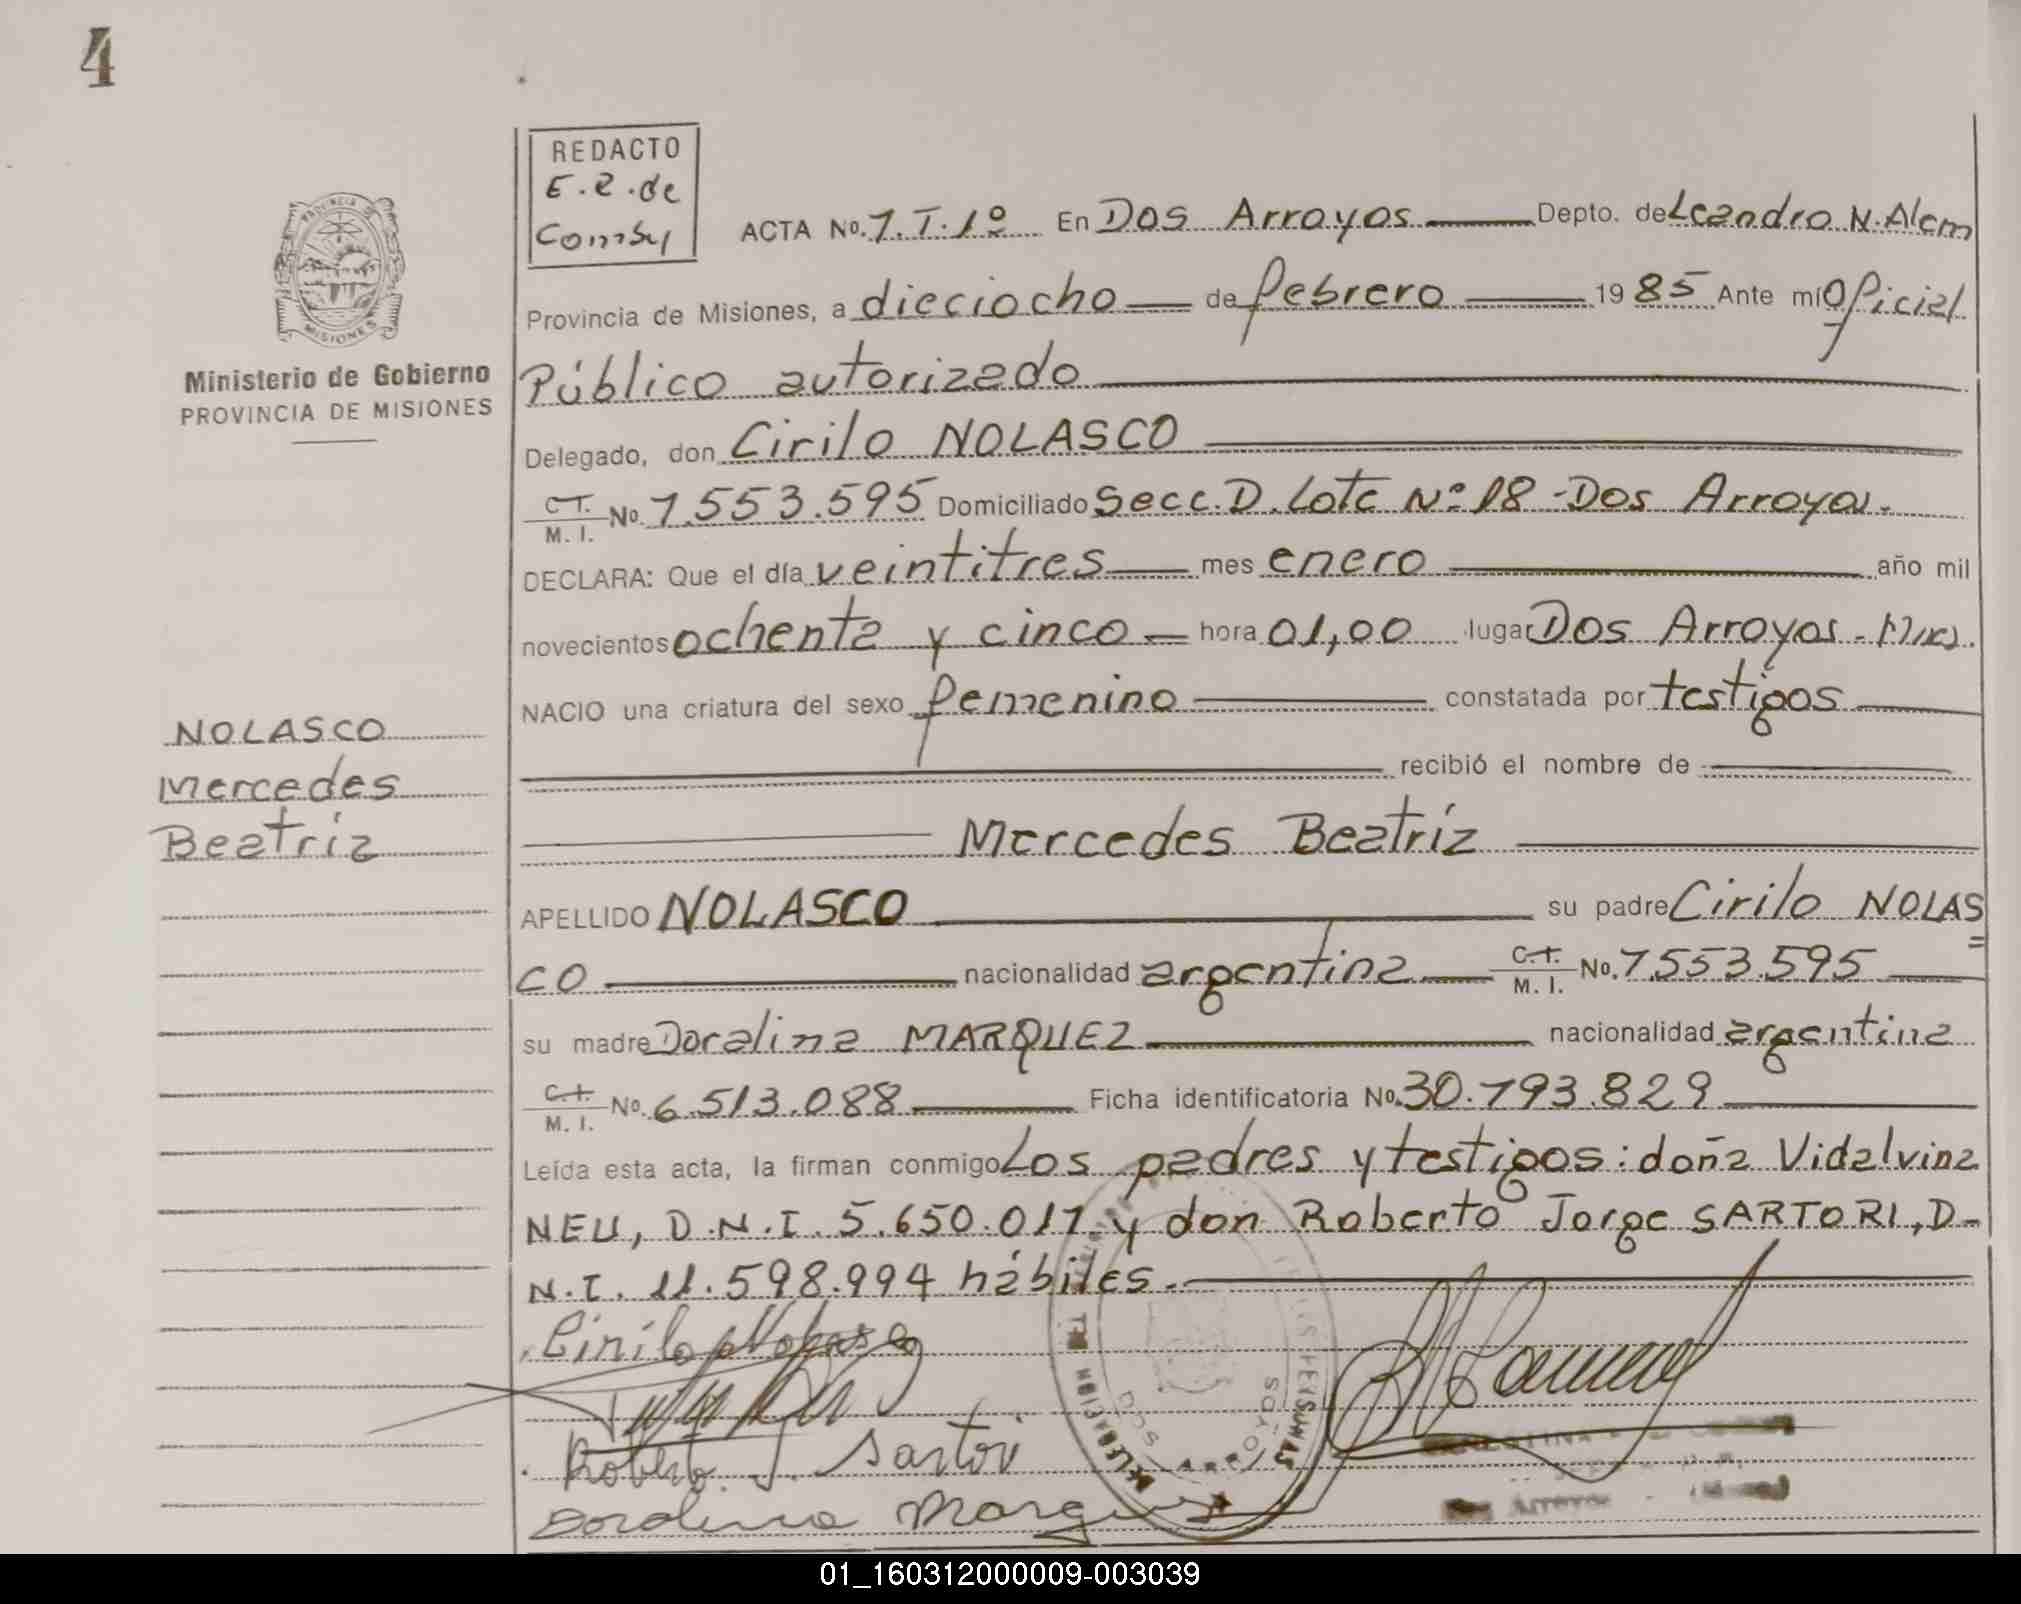 4
REDACTO
E.R.de
ACTA No. 7.T.1º En Dos Arroyos Depto. de Leandro N. Alem
Provincia de Misiones, a dieciocho de febrero 1985 Ante mí Oficial
PROVINCIA DE MISIONES
Ministerio de Gobierno
PROVINCIA DE MISIONES
Público autorizado
Delegado, don Cirilo NOLASCO
C.I. M. I. No. 7.553.595 Domiciliado Secc. D. Lote Nº 18 - Dos Arroyos.
DECLARA: Que el día veintitres mes enero año mil
novecientos ochenta y cinco hora 01,00 lugar Dos Arroyos - Mnes.
NACIO una criatura del sexo femenino constatada por testigos
recibió el nombre de
Mercedes Beatríz
NOLASCO
Mercedes
Beatríz
APELLIDO NOLASCO su padre Cirilo NOLAS=
CO nacionalidad argentina C.I. M. I. No. 7.553.595
su madre Doralina MARQUEZ nacionalidad argentina
C.I. M. I. No. 6.513.088 Ficha identificatoria No. 30.793.829
Leída esta acta, la firman conmigo Los padres y testigos: doña Vidalvina
NEU, D.N.I. 5.650.017 y don Roberto Jorge SARTORI, D-
N.I. 11.598.994 hábiles.-
Cirilo Nolasco
Roberto J. Sartori
Doralina Marquez
DOS ARROYOS
Dos Arroyos
01_160312000009-003039